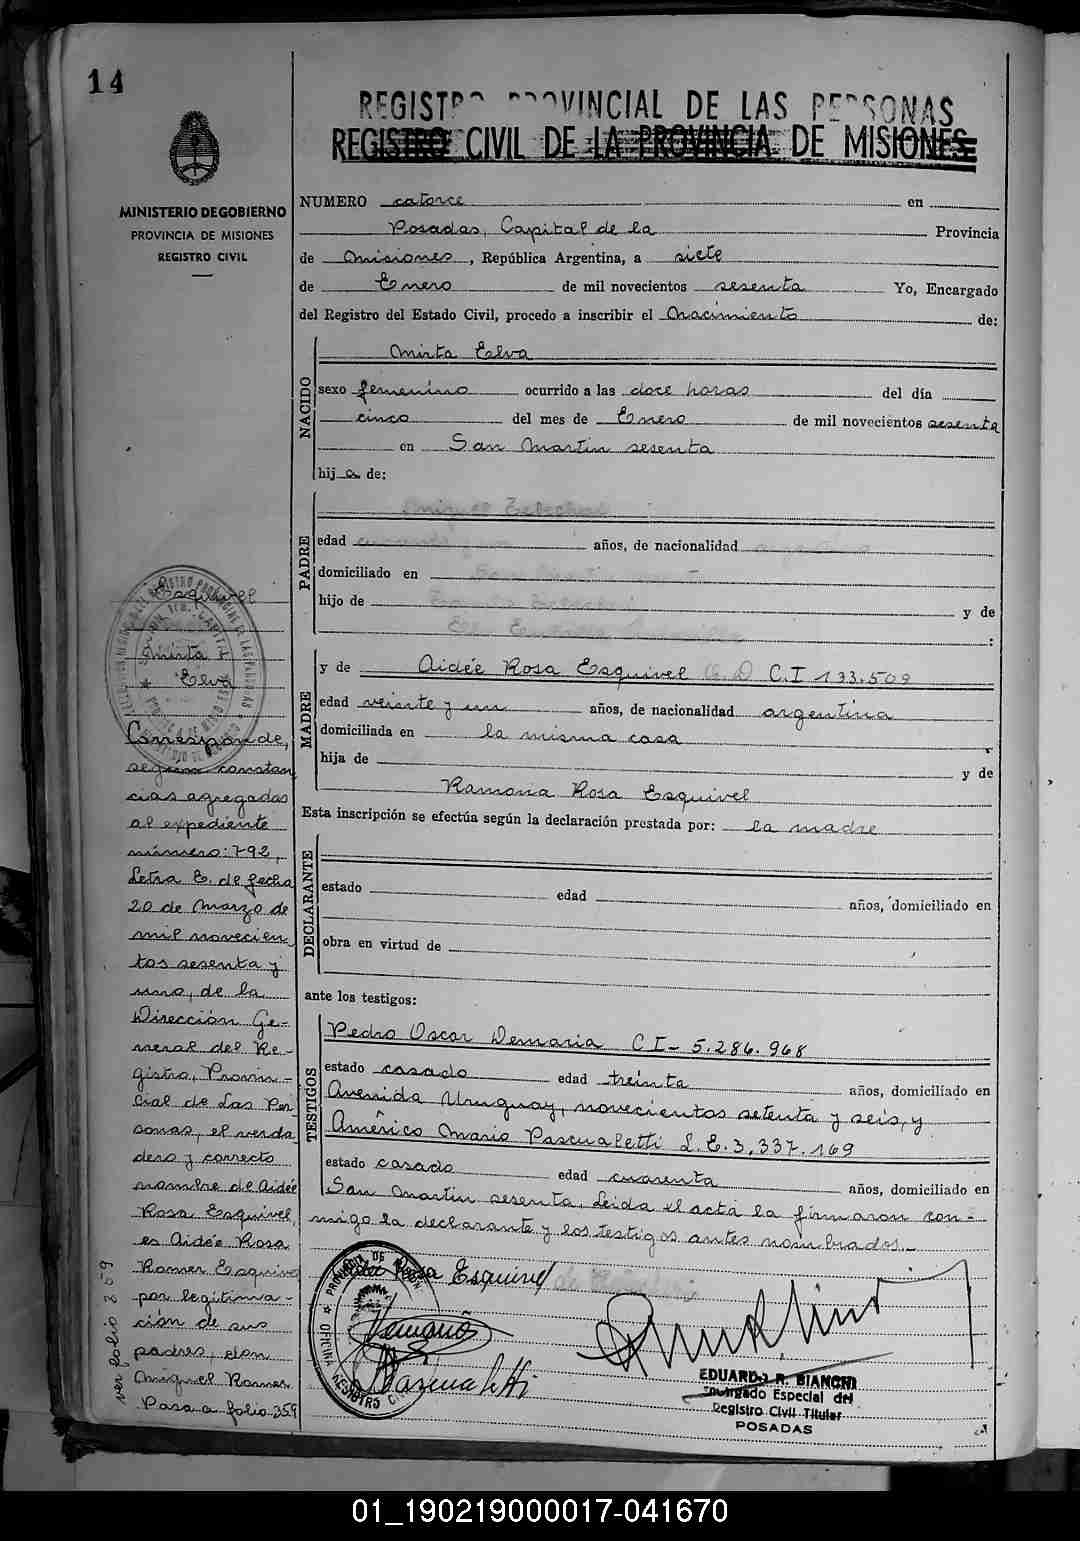 14
REGISTRO PROVINCIAL DE LAS PERSONAS
REGISTRO CIVIL DE LA PROVINCIA DE MISIONES
MINISTERIO DE GOBIERNO
PROVINCIA DE MISIONES
REGISTRO CIVIL
NUMERO catorce en
Posadas, Capital de la Provincia
de Misiones, República Argentina, a siete
de Enero de mil novecientos sesenta Yo, Encargado
del Registro del Estado Civil, procedo a inscribir el Nacimiento de:
NACIDO
Mirta Elva
sexo femenino ocurrido a las doce horas del día
cinco del mes de Enero de mil novecientos sesenta
en San Martin sesenta
hija de:
PADRE
edad años, de nacionalidad
domiciliado en
hijo de y de
:
MADRE
y de Aidée Rosa Esquivel C.I 133.509
edad veinte y un años, de nacionalidad argentina
domiciliada en la misma casa
hija de y de
Ramona Rosa Esquivel
Esta inscripción se efectúa según la declaración prestada por: la madre
DECLARANTE
estado edad años, domiciliado en
obra en virtud de
ante los testigos:
TESTIGOS
Pedro Oscar Demaria C I- 5.286.968
estado casado edad treinta años, domiciliado en
Avenida Uruguay, novecientos setenta y seis, y
Américo Mario Pascualetti L.E. 3.337.169
estado casado edad cuarenta años, domiciliado en
San Martin sesenta, Leida el acta la firmaron con-
migo la declarante y los testigos antes nombrados.-
Rosa Esquivel
EDUARDO R. BIANCHI
Encargado Especial del
Registro Civil Titular
POSADAS
Esquivel
Mirta
Elva
Corresponde,
segun constan
cias agregadas
al expediente
número: 792,
Letra E. de fecha
20 de Marzo de
mil novecien
tos sesenta y
uno, de la
Dirección Ge-
neral del Re-
gistro, Provin-
cial de Las Per
sonas, el verda
dero y correcto
nombre de Aidée
Rosa Esquivel,
es Aidée Rosa
Romer Esquivel
por legitima-
ción de sus
padres, don
Miguel Romer
Pasa a folio 359
ver folio 359
01_190219000017-041670